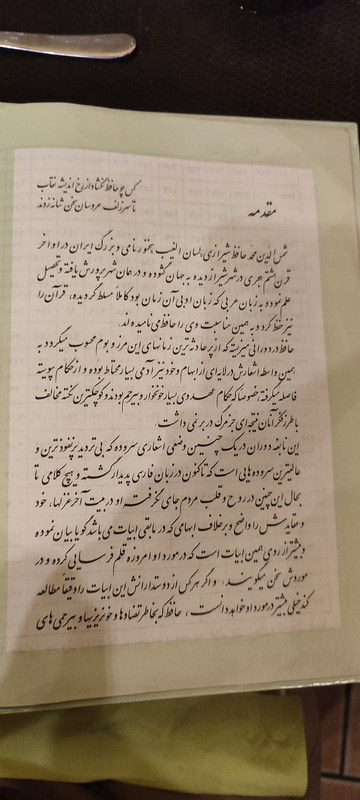 کس چو حافظ نگشاد از رخ اندیشه نقاب
تا سر زلف عروسان سخن شانه زدند
مقدمه
شمس الدین محمد حافظ شیرازی، لسان الغیب سخنور نامی و بزرگ ایران در اواخر
قرن هشتم هجری در شهر شیراز دیده به جهان گشوده و در همان شهر پرورش یافته و تحصیل
علم نموده و به زبان عربی که زبان ادبی آن زمان بود کاملاً مسلط گردیده، قرآن را
نیز حفظ کرد و به همین مناسبت وی را حافظ می نامیده اند.
حافظ در دورانی میزیسته که از پرحادثه ترین زمانهای این مرز و بوم محسوب میگردد به
همین واسطه اشعارش در لایه ای از ابهام و خود نیز آدمی بسیار محتاط بوده و از حکام پیوسته
فاصله میگرفته خصوصاً که حکام عهد وی بسیار خونخوار و بیرحم بودند و کوچکترین نکته مخالف
با طرز فکر آنان نتیجه ای جز مرگ در بر نمی داشت
این نابغه دوران در یک چنین وضعی اشعاری سروده که بی تردید پرنفوذترین و
عالیترین سروده هایی است که تاکنون در زبان فارسی پدیدار گشته و هیچ کلامی تا
بحال این چنین در روح و قلب مردم جای نگرفته. او در بیت آخر غزلها، خود
و عقایدش را واضح و برخلاف ابهامی که در مابقی ابیات می باشد گویا بیان نموده
و بیشتر از روی همین ابیات است که در مورد او امروزه قلم فرسایی کرده و در
موردش سخن میگویند، و اگر هر کس از دوستدارانش این ابیات را دقیقاً مطالعه
کند خیلی بیشتر در مورد او خواهد دانست، حافظ که بخاطر تضادها و خونریزیها و بیرحمی های